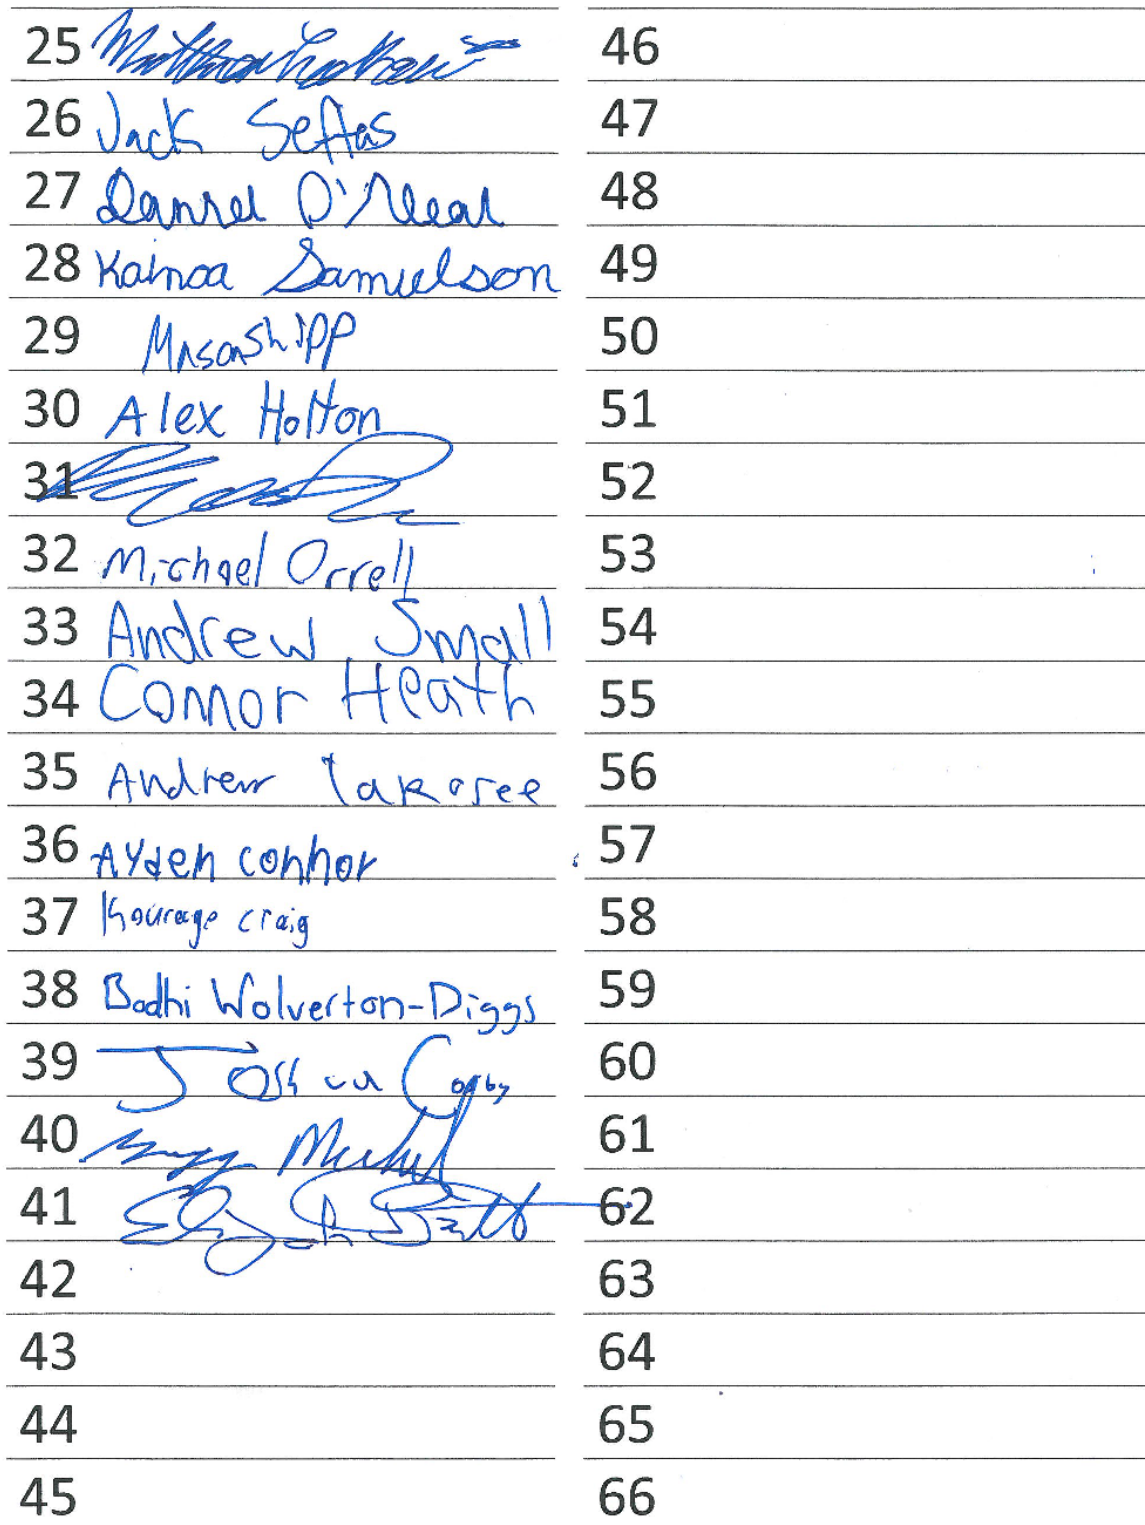 25
26 Jack Seftas
27 Daniel O'Neal
28 Kainoa Samuelson
29 Mason Shipp
30 Alex Holton
31
32 Michael Orrell
33 Andrew Small
34 Connor Heath
35 Andrew
36 Ayden connor
37 Kourage craig
38 Bodhi Wolverton-Diggs
39 Joshua Corby
40
41 Elijah
42
43
44
45
46
47
48
49
50
51
52
53
54
55
56
57
58
59
60
61
62
63
64
65
66